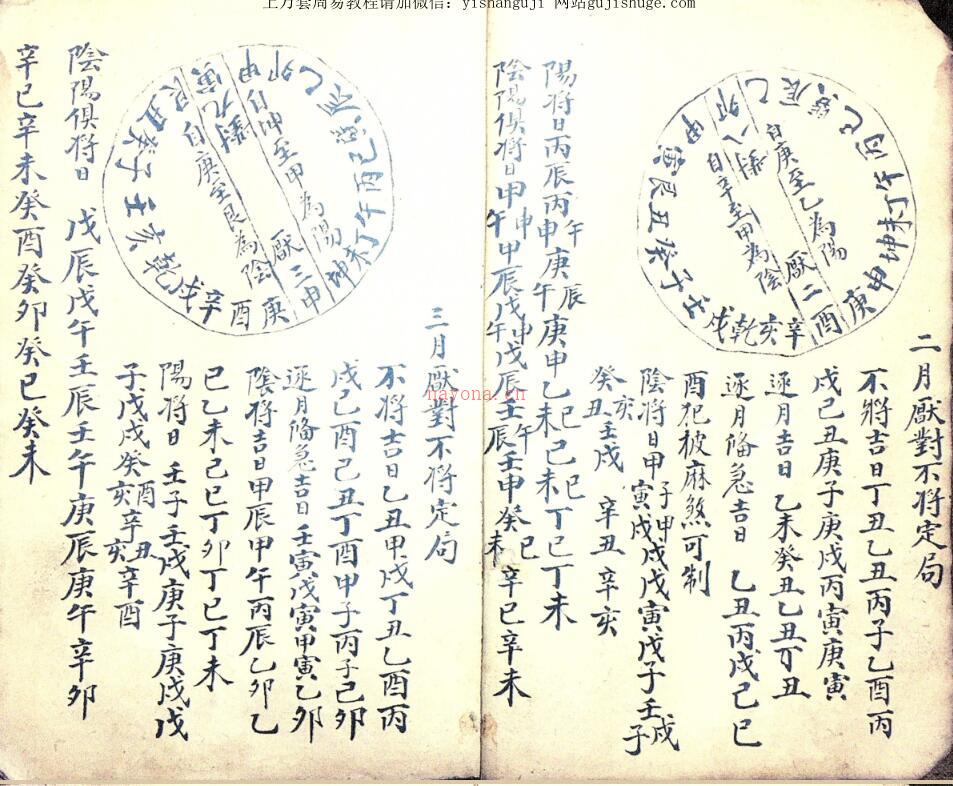 上万套周易教程请加微信：yishanguji 网站gujishuge.com
二月厭對不将定局
不將吉日丁丑乙丑丙子乙酉丙
戌己丑庚子庚戌丙寅庚寅
逐月吉日 乙未癸丑乙丑丁丑
逐月偹急吉日 乙丑丙戌己巳
酉犯披麻煞可制
陰将日甲子甲戌戊寅戊子壬戌
寅戌
子
癸亥壬戌 辛丑辛亥
丑
自庚至乙為陽
厭二
八對
自辛至甲為陰
乙辰巽巳丙午丁未坤申庚酉辛亥乾戌壬子癸丑艮寅甲卯
陽将日丙辰丙申庚午庚申乙未己未丁巳丁未
午
辰
巳
巳
陰陽俱将日甲申甲辰戊申戊辰壬午壬申癸巳辛巳辛未
午
午
辰
未
三月厭對不将定局
不将吉日乙丑甲戌丁丑乙酉丙
戌己酉己丑丁酉甲子丙子己卯
逐月偹急吉日壬寅戊寅甲寅乙卯
陰将吉日甲辰甲午丙辰乙卯乙
巳乙未己巳丁卯丁巳丁未
陽将日 壬子壬戌庚子庚戌戊
子戊戌癸酉辛丑辛酉
亥
亥
自坤至甲為陽
厭三
九對
自庚至艮為陰
甲卯乙辰巽巳丙午丁未坤申庚酉辛戌乾亥壬子癸丑艮寅
陰陽俱將日 戊辰戊午壬辰壬午庚辰庚午辛卯
辛巳辛未癸酉癸卯癸巳癸未
nayona.cn